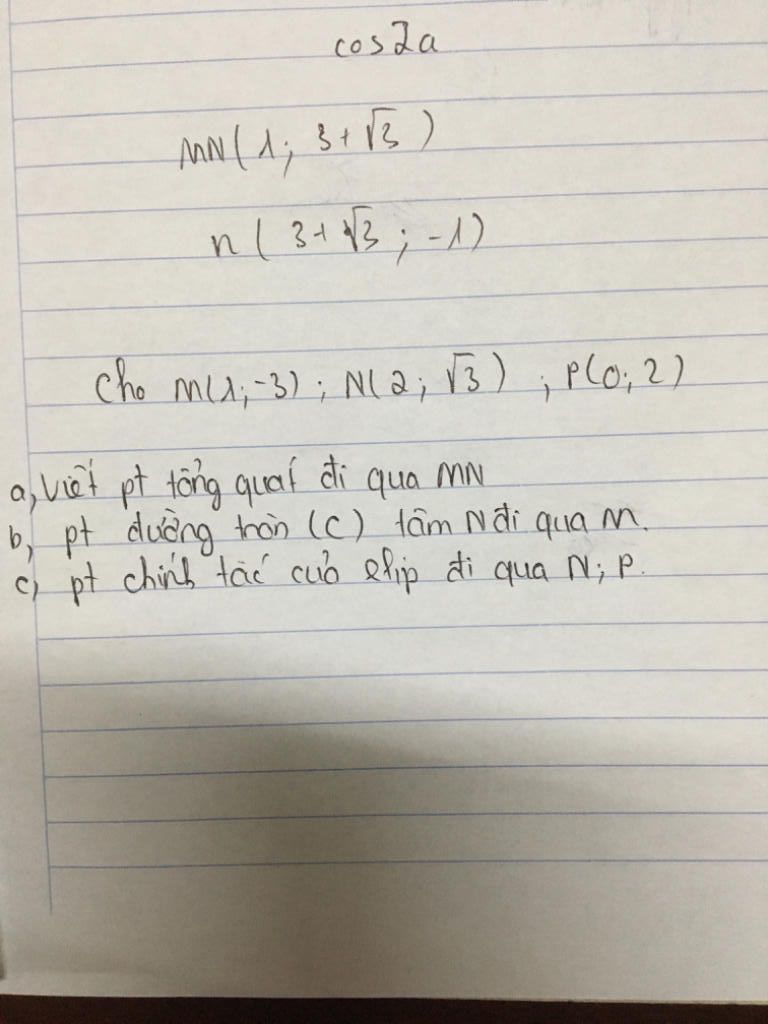 cos2a
MN(1; 3+√3)
n(3+√3; -1)
Cho M(1;-3); N(2; √3) ; P(0; 2)
a, Viết pt tổng quát đi qua MN
b, pt đường tròn (C) tâm N đi qua M.
c, pt chính tắc của elip đi qua N; P.